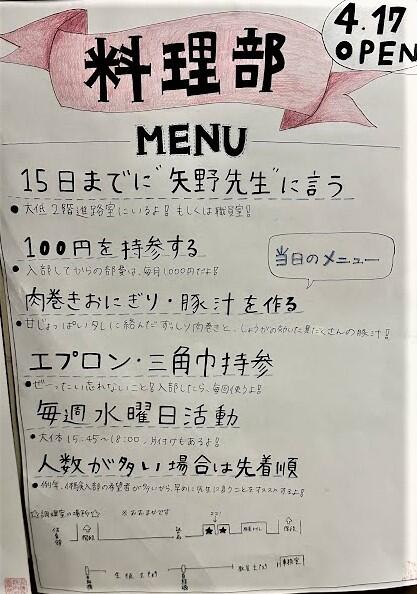 料理部
4.17
OPEN
MENU
15日までに"矢野先生"に言う
●大低2階進路室にいるよ!もしくは職員室!
100円を持参する
●入部してからの部費は、毎月1000円だよ!
当日のメニュー
肉巻きおにぎり・豚汁を作る
●甘じょっぱいタレに絡んだずっしり肉巻きと、しょうがの効いた具だくさんの豚汁!
エプロン・三角巾持参
●ぜーったい忘れないこと!入部したら、毎回使うよ!
毎週水曜日活動
●大体15:45〜18:00,片付けもあるよ!
人数が多い場合は先着順
●例年、体験入部の希望者が多いから、早めに先生に言うことをオススメするよ!
☆調理室の場所☆ ※おおまかです
体育館
階段
ココ!
★★
階段
生徒玄関